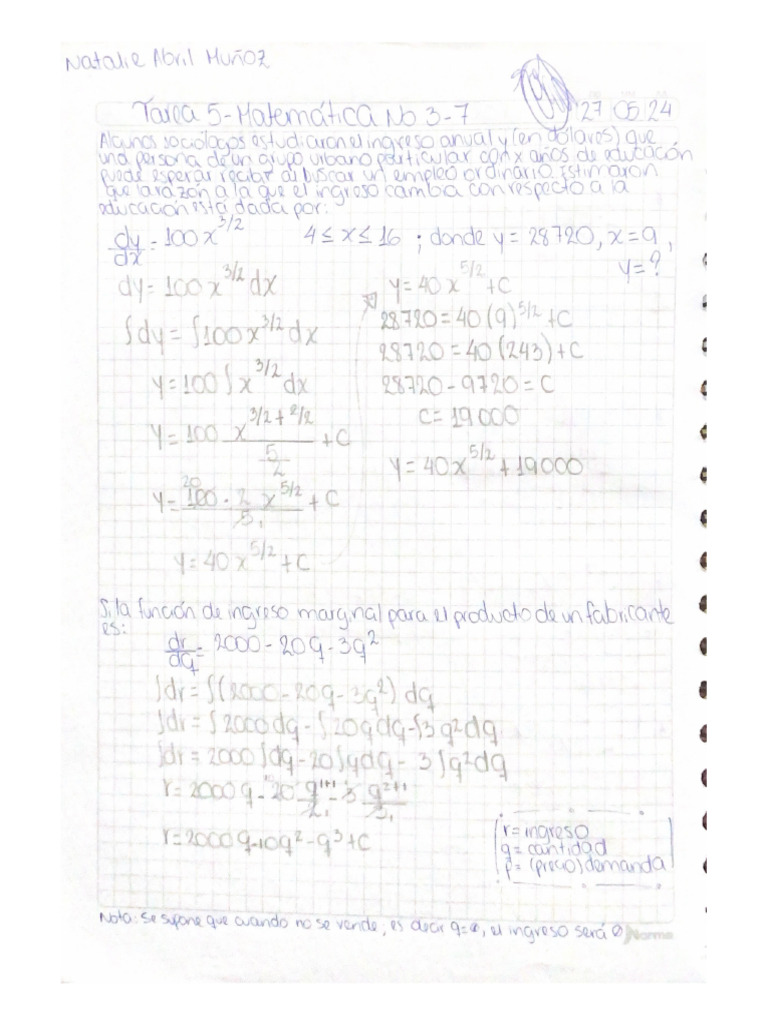 Natalie Abril Muñoz
27 05 24
Tarea 5-Matemática No 3-7
Algunos sociólogos estudiaron el ingreso anual y (en dólares) que
una persona de un grupo urbano particular con x años de educación
puede esperar recibir al buscar un empleo ordinario. Estimaron
que la razón a la que el ingreso cambia con respecto a la
educación está dada por:
dy/dx = 100x^3/2    4 ≤ x ≤ 16 ; donde y = 28720, x = 9,
y = ?
dy = 100x^3/2 dx
∫dy = ∫100x^3/2 dx
y = 100∫x^3/2 dx
y = 100 x^3/2+2/2 / 5/2 + C
y = 100 · 2 x^5/2 / 5 + C
20
1
y = 40x^5/2 + C
y = 40x^5/2 + C
28720 = 40(9)^5/2 + C
28720 = 40(243) + C
28720 - 9720 = C
C = 19000
y = 40x^5/2 + 19000
Si la función de ingreso marginal para el producto de un fabricante
es:
dr/dq = 2000 - 20q - 3q²
∫dr = ∫(2000 - 20q - 3q²) dq
∫dr = ∫2000dq - ∫20qdq - ∫3q²dq
∫dr = 2000∫dq - 20∫qdq - 3∫q²dq
r = 2000q - 20 q^1+1 / 2 - 3 q^2+1 / 3
r = 2000q - 10q² - q³ + C
r = ingreso
q = cantidad
p = (precio) demanda
Nota: Se supone que cuando no se vende, es decir q=0, el ingreso será 0
Norma